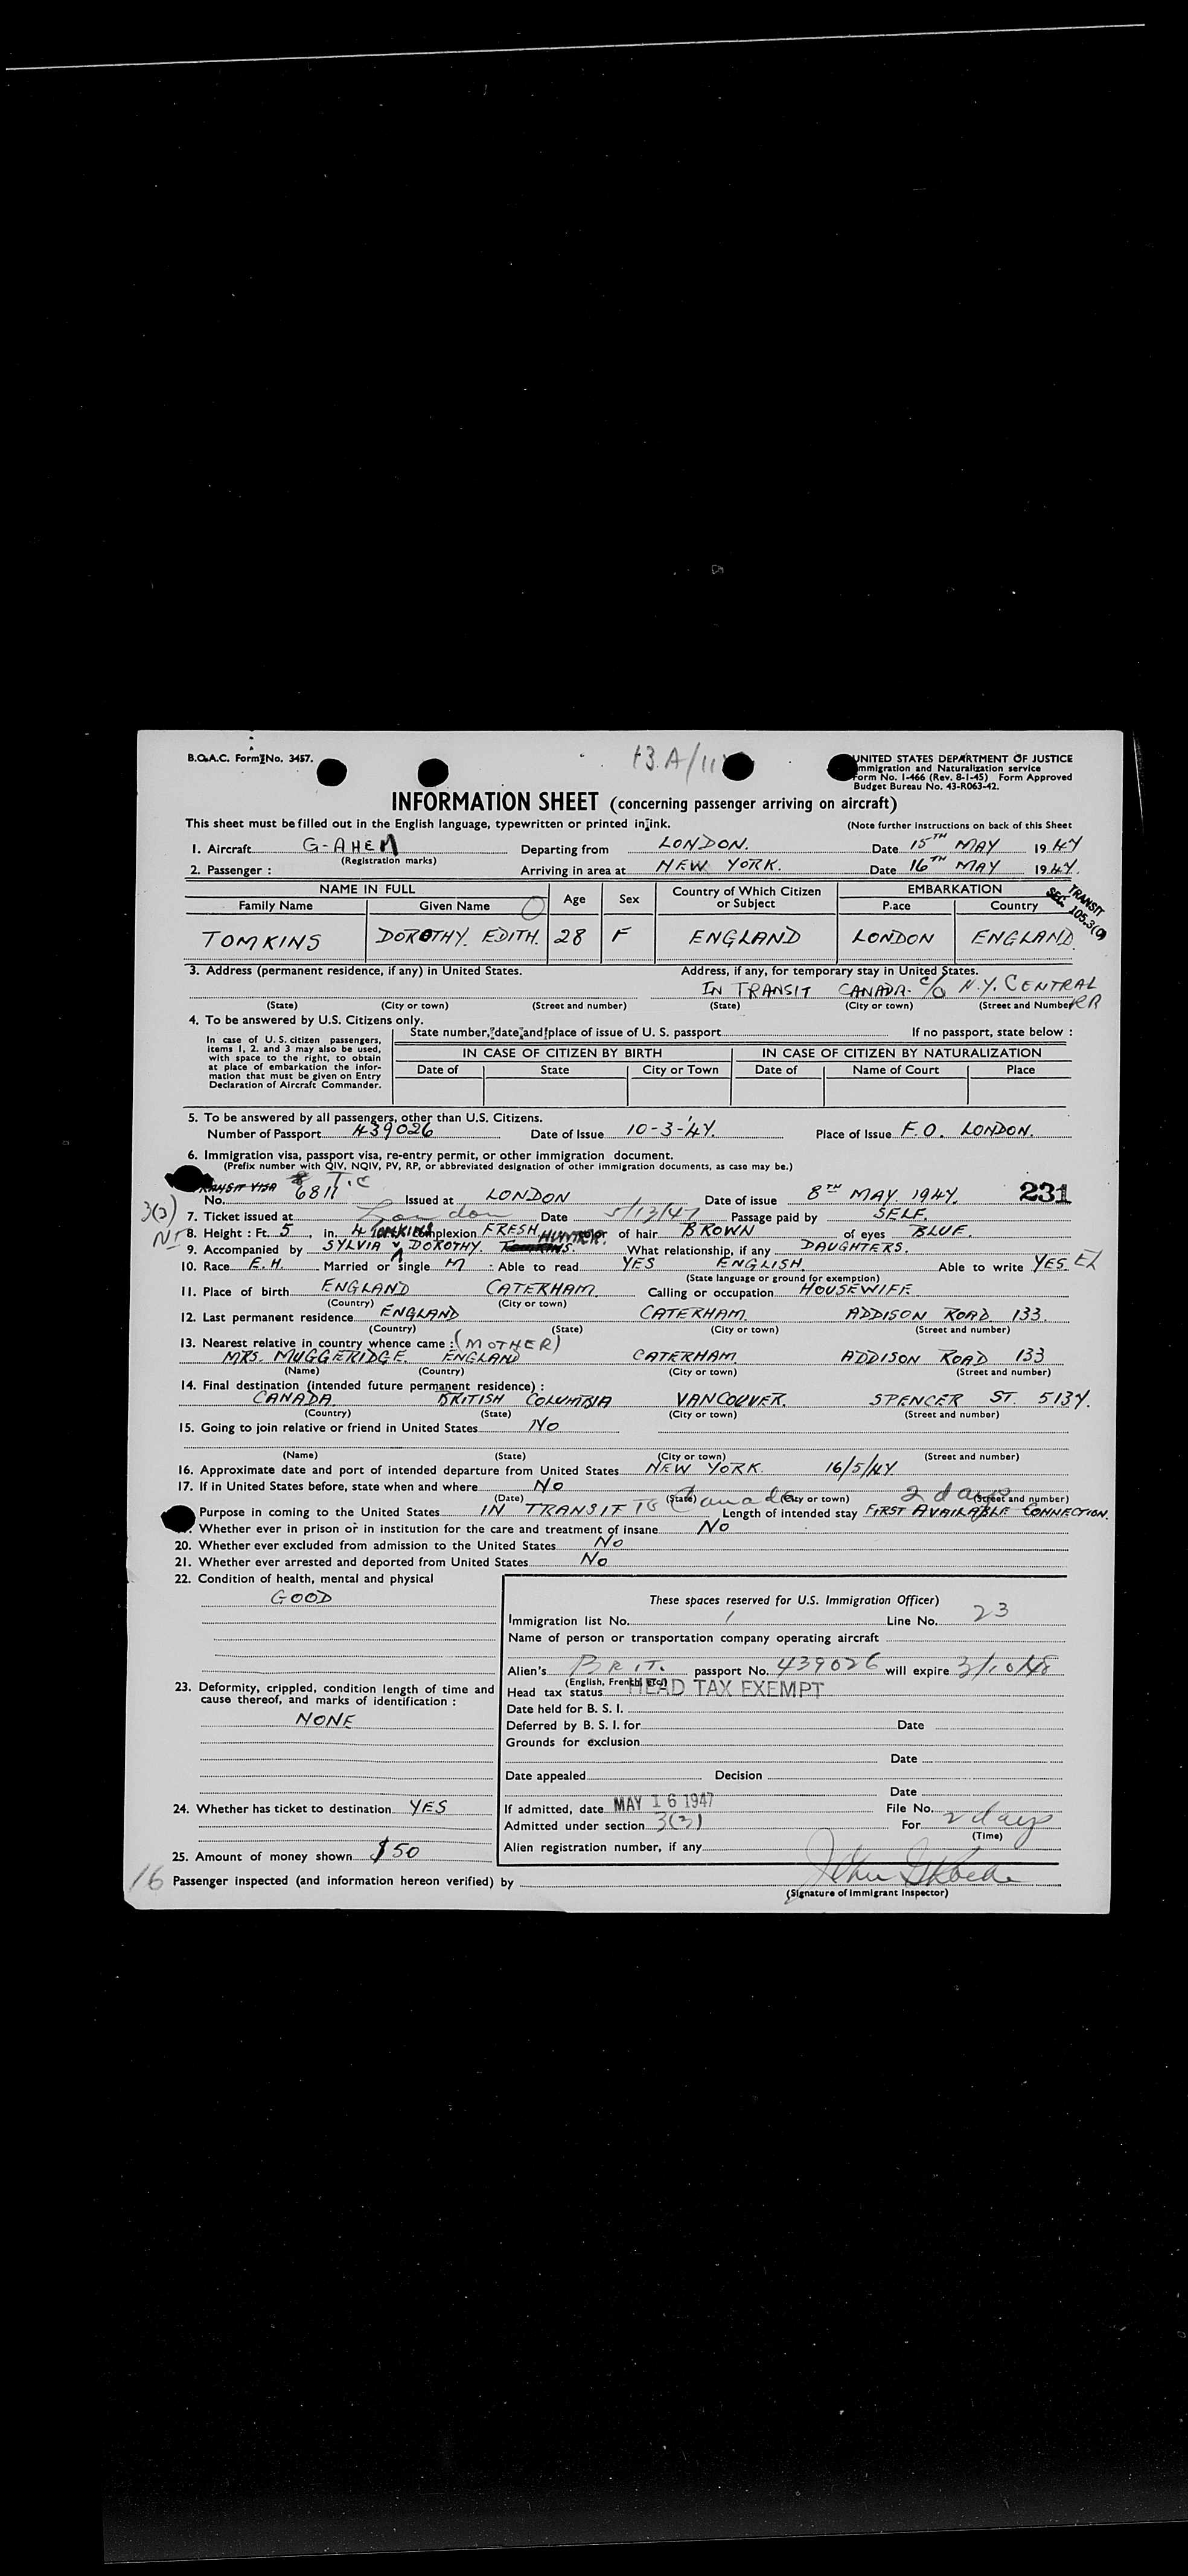 B.O.A.C. Form No. 3457.
13.A/11
UNITED STATES DEPARTMENT OF JUSTICE
Immigration and Naturalization service
Form No. I-466 (Rev. 8-1-45) Form Approved
Budget Bureau No. 43-R063-42.
INFORMATION SHEET (concerning passenger arriving on aircraft)
This sheet must be filled out in the English language, typewritten or printed in ink. (Note further instructions on back of this Sheet
1. Aircraft G-AHEM Departing from LONDON. Date 15TH MAY 1947
(Registration marks)
2. Passenger : Arriving in area at NEW YORK. Date 16TH MAY 1947.
NAME IN FULL Age Sex Country of Which Citizen or Subject EMBARKATION
Family Name Given Name Place Country
TRANSIT SEC. 105.3(C)
TOMKINS DOROTHY. EDITH. 28 F ENGLAND LONDON ENGLAND.
3. Address (permanent residence, if any) in United States. Address, if any, for temporary stay in United States.
IN TRANSIT CANADA- C/O N.Y. CENTRAL RR
(State) (City or town) (Street and number) (State) (City or town) (Street and Number)
4. To be answered by U.S. Citizens only.
State number, date and place of issue of U. S. passport If no passport, state below :
In case of U. S. citizen passengers, items 1, 2. and 3 may also be used, with space to the right, to obtain at place of embarkation the information that must be given on Entry Declaration of Aircraft Commander.
IN CASE OF CITIZEN BY BIRTH IN CASE OF CITIZEN BY NATURALIZATION
Date of State City or Town Date of Name of Court Place
5. To be answered by all passengers, other than U.S. Citizens.
Number of Passport 439026 Date of Issue 10-3-47. Place of Issue F.O. LONDON.
6. Immigration visa, passport visa, re-entry permit, or other immigration document.
(Prefix number with QIV, NQIV, PV, RP, or abbreviated designation of other immigration documents, as case may be.)
TRANSIT VISA T.C
No. 6811 Issued at LONDON Date of issue 8TH MAY. 1947. 231
3(3)
7. Ticket issued at London Date 5/13/47 Passage paid by SELF
8. Height : Ft. 5, in. 4 Complexion FRESH of hair BROWN of eyes BLUE.
TOMKINS HUNTER.
9. Accompanied by SYLVIA ^ DOROTHY. TOMKINS. What relationship, if any DAUGHTERS.
10. Race E.H. Married or single M Able to read YES ENGLISH. Able to write YES
(State language or ground for exemption)
11. Place of birth ENGLAND CATERHAM. Calling or occupation HOUSEWIFE
(Country) (City or town)
12. Last permanent residence ENGLAND CATERHAM. ADDISON ROAD 133.
(Country) (State) (City or town) (Street and number)
13. Nearest relative in country whence came : (MOTHER)
MRS. MUGGERIDGE. ENGLAND CATERHAM. ADDISON ROAD 133
(Name) (Country) (City or town) (Street and number)
14. Final destination (intended future permanent residence) :
CANADA. BRITISH COLUMBIA VANCOUVER. SPENCER ST. 5137.
(Country) (State) (City or town) (Street and number)
15. Going to join relative or friend in United States NO
(Name) (State) (City or town) (Street and number)
16. Approximate date and port of intended departure from United States NEW YORK. 16/5/47
17. If in United States before, state when and where NO
(Date) (State) (City or town) (Street and number)
2 days
Purpose in coming to the United States IN TRANSIT TO Canada Length of intended stay FIRST AVAILABLE CONNECTION.
Whether ever in prison or in institution for the care and treatment of insane NO
20. Whether ever excluded from admission to the United States NO
21. Whether ever arrested and deported from United States NO
22. Condition of health, mental and physical
GOOD
These spaces reserved for U.S. Immigration Officer)
Immigration list No. 1 Line No. 23
Name of person or transportation company operating aircraft
Alien's BRIT. passport No. 439026 will expire 3/10/48
(English, French, Etc.)
23. Deformity, crippled, condition length of time and cause thereof, and marks of identification :
NONE
Head tax status HEAD TAX EXEMPT
Date held for B. S. I.
Deferred by B. S. I. for Date
Grounds for exclusion
Date
Date appealed Decision
Date
24. Whether has ticket to destination YES
If admitted, date MAY 16 1947 File No.
Admitted under section 3(3) For 2 days
(Time)
Alien registration number, if any
25. Amount of money shown $50
16 Passenger inspected (and information hereon verified) by
(Signature of Immigrant Inspector)